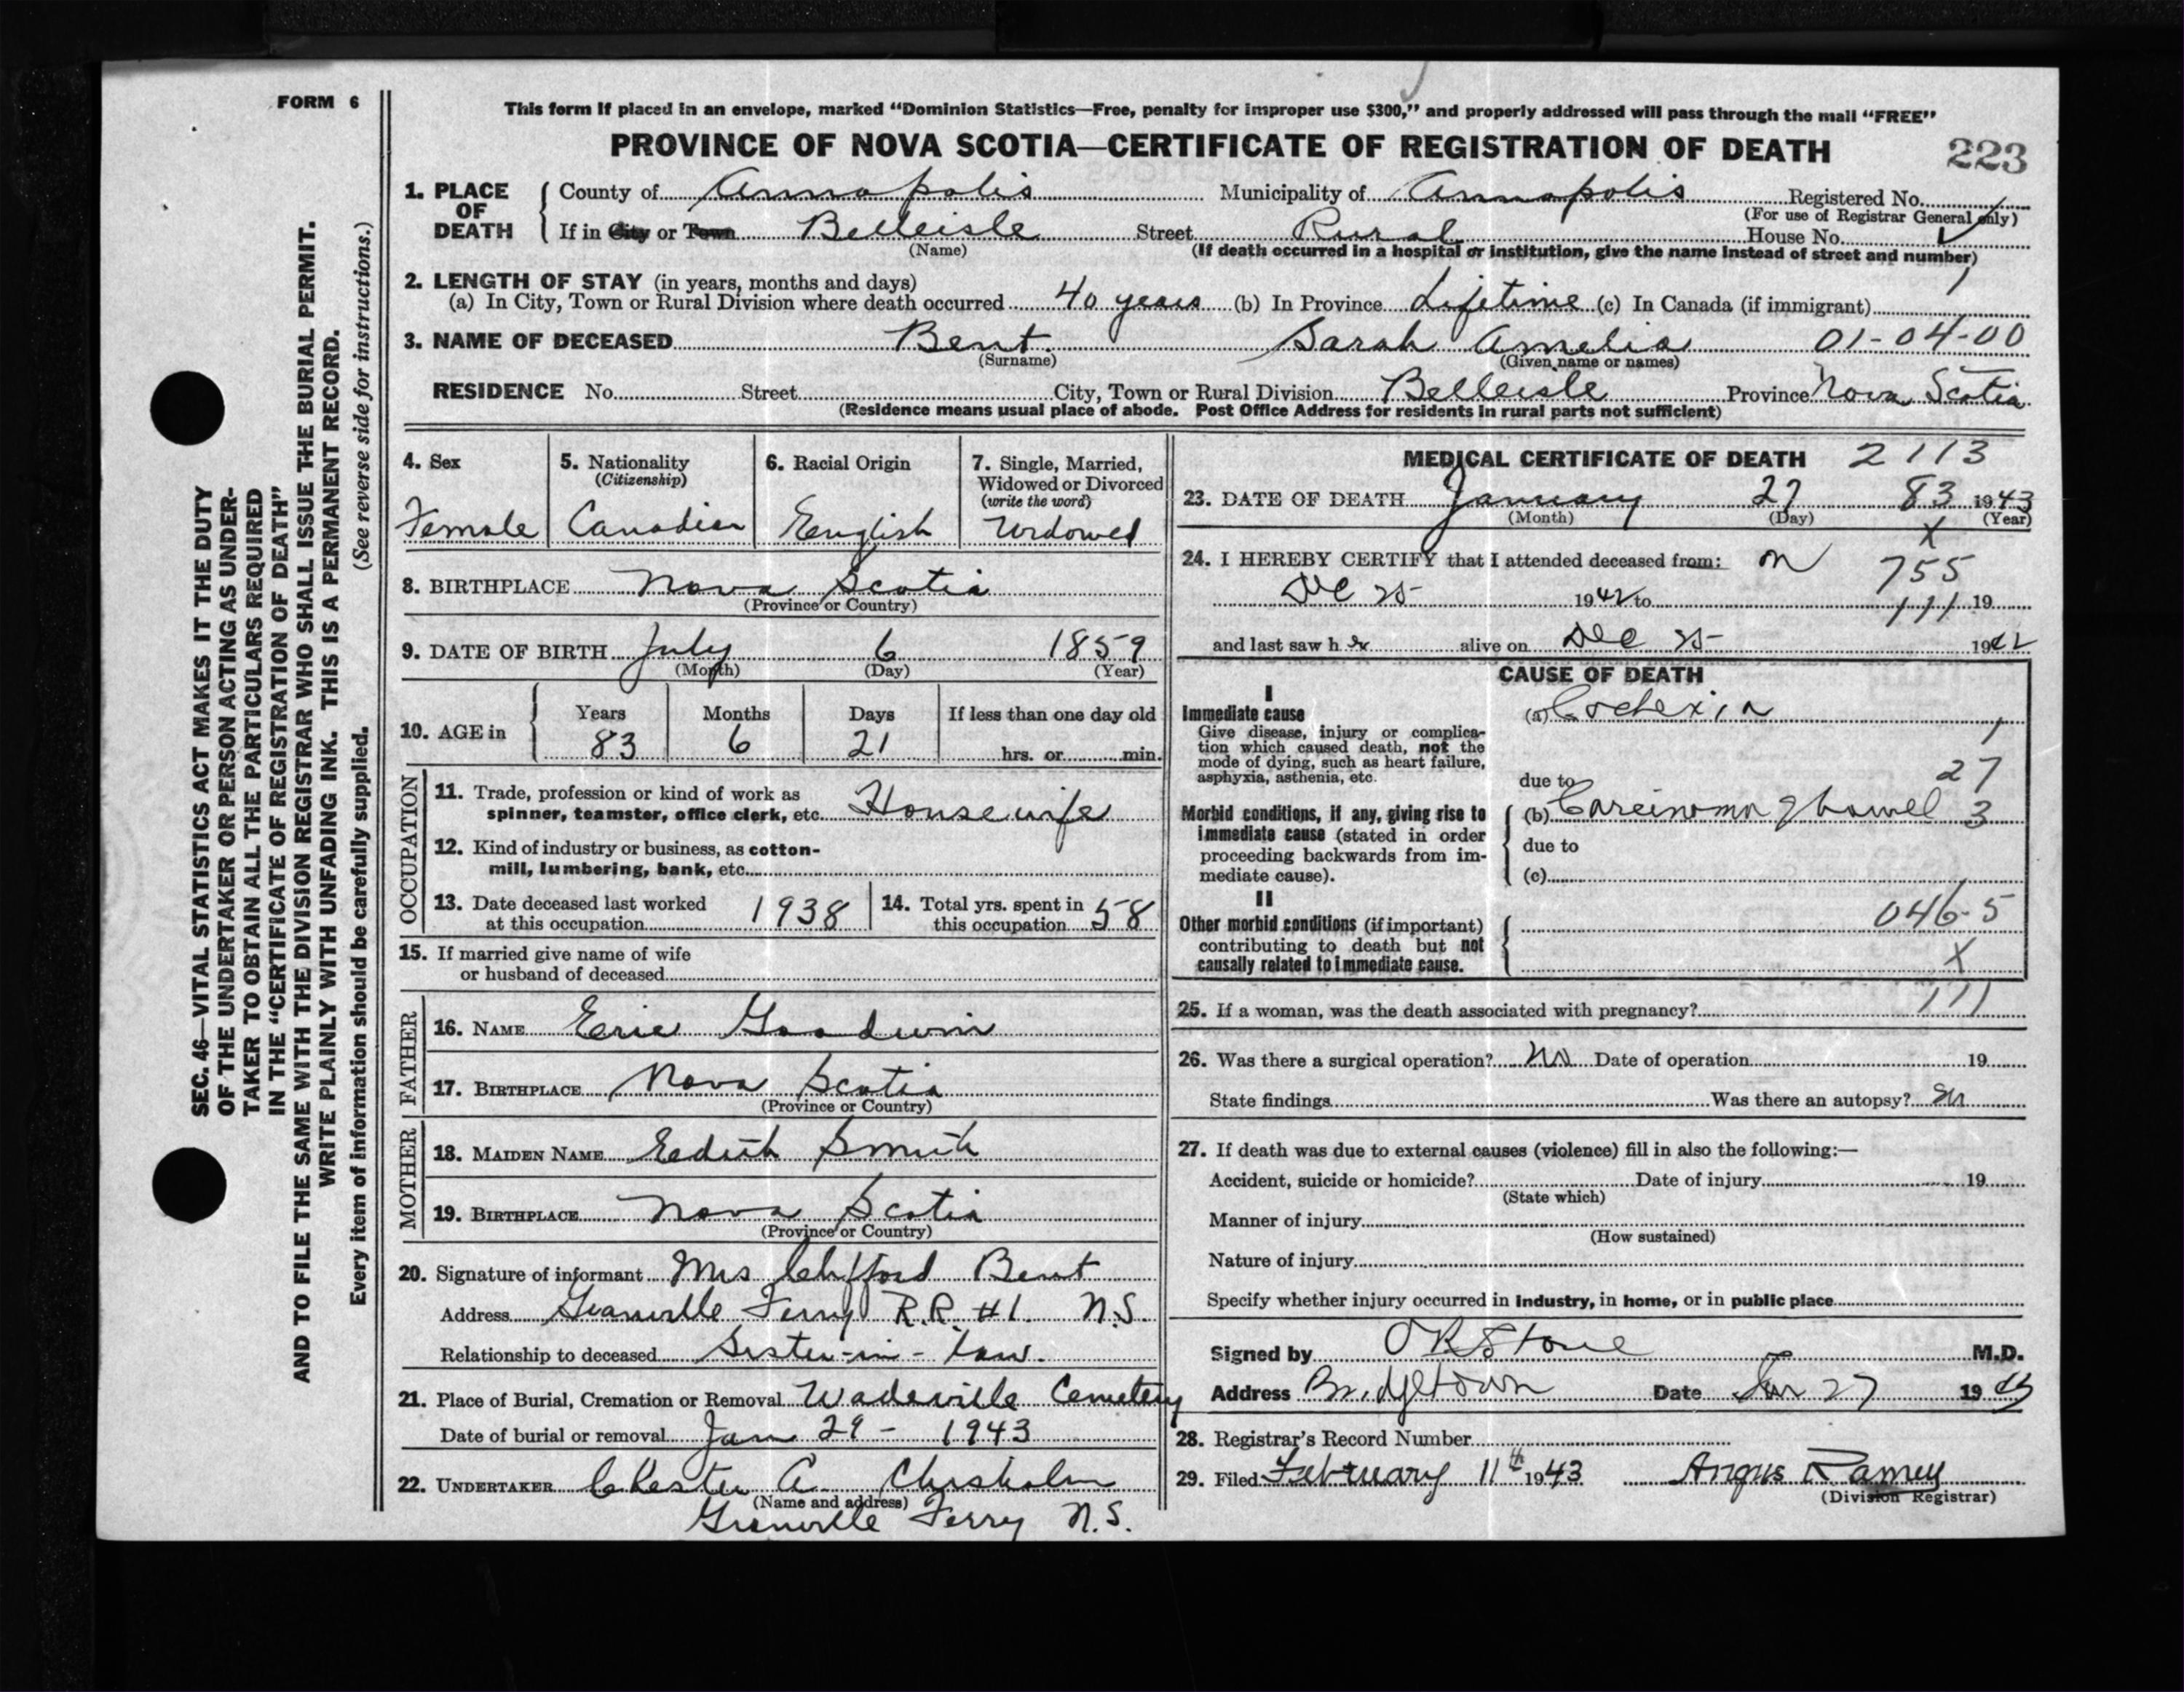 FORM 6
This form if placed in an envelope, marked "Dominion Statistics—Free, penalty for improper use $300," and properly addressed will pass through the mail "FREE"
PROVINCE OF NOVA SCOTIA—CERTIFICATE OF REGISTRATION OF DEATH 223
1. PLACE OF DEATH County of Annapolis Municipality of Annapolis Registered No.
(For use of Registrar General only)
If in City or Town Belleisle Street Rural House No.
(Name) (If death occurred in a hospital or institution, give the name instead of street and number)
2. LENGTH OF STAY (in years, months and days) 1
(a) In City, Town or Rural Division where death occurred 40 years (b) In Province Lifetime (c) In Canada (if immigrant)
3. NAME OF DECEASED Bent Sarah Amelia 01-04-00
(Surname) (Given name or names)
RESIDENCE No. Street City, Town or Rural Division Belleisle Province Nova Scotia
(Residence means usual place of abode. Post Office Address for residents in rural parts not sufficient)
4. Sex 5. Nationality (Citizenship) 6. Racial Origin 7. Single, Married, Widowed or Divorced (write the word)
Female Canadian English Widowed
8. BIRTHPLACE Nova Scotia
(Province or Country)
9. DATE OF BIRTH July 6 1859
(Month) (Day) (Year)
10. AGE in Years Months Days If less than one day old
83 6 21 hrs. or min.
OCCUPATION
11. Trade, profession or kind of work as spinner, teamster, office clerk, etc. Housewife
12. Kind of industry or business, as cotton-mill, lumbering, bank, etc.
13. Date deceased last worked at this occupation 1938 14. Total yrs. spent in this occupation 58
15. If married give name of wife
or husband of deceased
FATHER
16. NAME Eric Goodwin
17. BIRTHPLACE Nova Scotia
(Province or Country)
MOTHER
18. MAIDEN NAME Eedith Smith
19. BIRTHPLACE Nova Scotia
(Province or Country)
20. Signature of informant Mrs Clifford Bent
Address Granville Ferry R.R. #1. N.S.
Relationship to deceased Sister-in-law.
21. Place of Burial, Cremation or Removal Wadeville Cemetery
Date of burial or removal Jan 29 - 1943
22. UNDERTAKER Chester A. Chisholm
(Name and address)
Granville Ferry N.S.
MEDICAL CERTIFICATE OF DEATH 2113
23. DATE OF DEATH January 27 83 1943
(Month) (Day) (Year)
X
24. I HEREBY CERTIFY that I attended deceased from: 755
Dec 25 1942 to 111 19
and last saw h er alive on Dec 25 1942
CAUSE OF DEATH
I
Immediate cause (a) Cachexia
Give disease, injury or complication which caused death, not the mode of dying, such as heart failure, asphyxia, asthenia, etc. 1
due to 27
Morbid conditions, if any, giving rise to immediate cause (stated in order proceeding backwards from immediate cause). (b) Carcinoma of bowel 3
due to
(c)
II
Other morbid conditions (if important) contributing to death but not causally related to immediate cause. 046-5
X
25. If a woman, was the death associated with pregnancy? 111
26. Was there a surgical operation? No Date of operation 19
State findings Was there an autopsy? No
27. If death was due to external causes (violence) fill in also the following:—
Accident, suicide or homicide? Date of injury 19
(State which)
Manner of injury
(How sustained)
Nature of injury
Specify whether injury occurred in industry, in home, or in public place
Signed by O R Stone M.D.
Address Bridgetown Date Jan 27 1943
28. Registrar's Record Number
29. Filed February 11th 1943 Angus Ramey
(Division Registrar)
SEC. 46—VITAL STATISTICS ACT MAKES IT THE DUTY
OF THE UNDERTAKER OR PERSON ACTING AS UNDER-
TAKER TO OBTAIN ALL THE PARTICULARS REQUIRED
IN THE "CERTIFICATE OF REGISTRATION OF DEATH"
AND TO FILE THE SAME WITH THE DIVISION REGISTRAR WHO SHALL ISSUE THE BURIAL PERMIT.
WRITE PLAINLY WITH UNFADING INK. THIS IS A PERMANENT RECORD.
Every item of information should be carefully supplied. (See reverse side for instructions.)